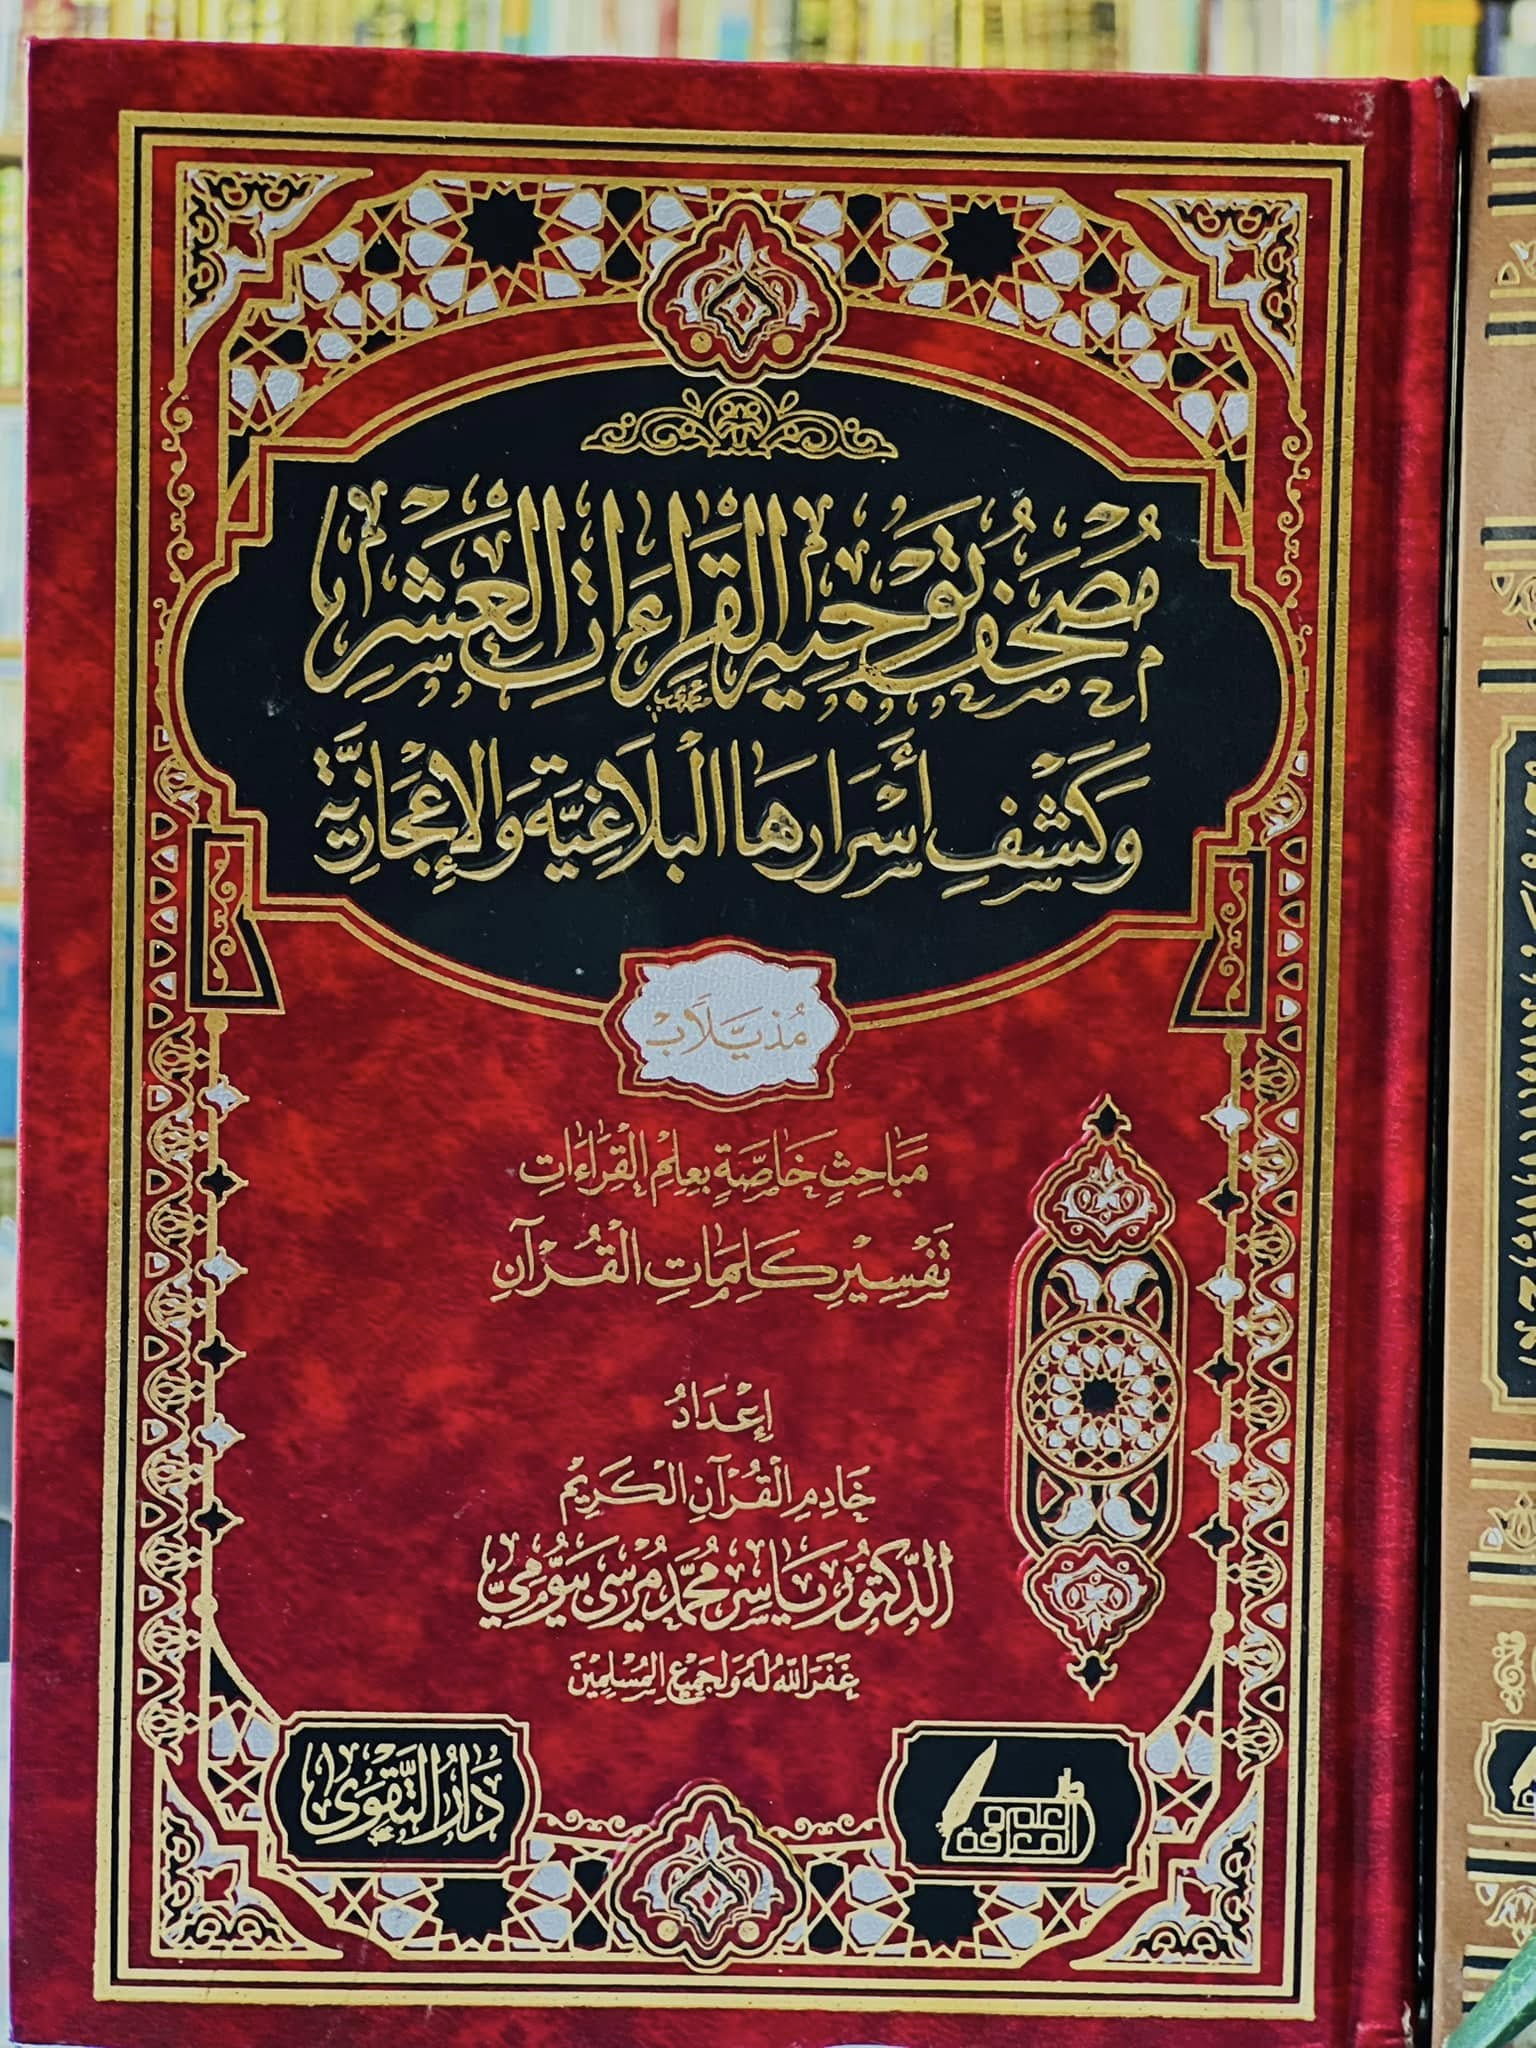 مُصْحَفُ تَوْجِيهِ الْقِرَاءَاتِ الْعَشْرِ
وَكَشْفِ أَسْرَارِهَا الْبَلَاغِيَّةِ وَالْإِعْجَازِيَّةِ
مُذَيَّلًا بِـ
مَبَاحِثَ خَاصَّةٍ بِعِلْمِ الْقِرَاءَاتِ
تَفْسِيرِ كَلِمَاتِ الْقُرْآنِ
إِعْدَادُ
خَادِمِ الْقُرْآنِ الْكَرِيْمِ
الدِّكْتُورُ يَاسِر مُحَمَّد مُرْسَى بَيُّومِيّ
غَفَرَ اللهُ لَهُ وَلِجَمِيْعِ الْمُسْلِمِيْنَ
دار العلوم والمعرفة
دَارُ التَّقْوَى